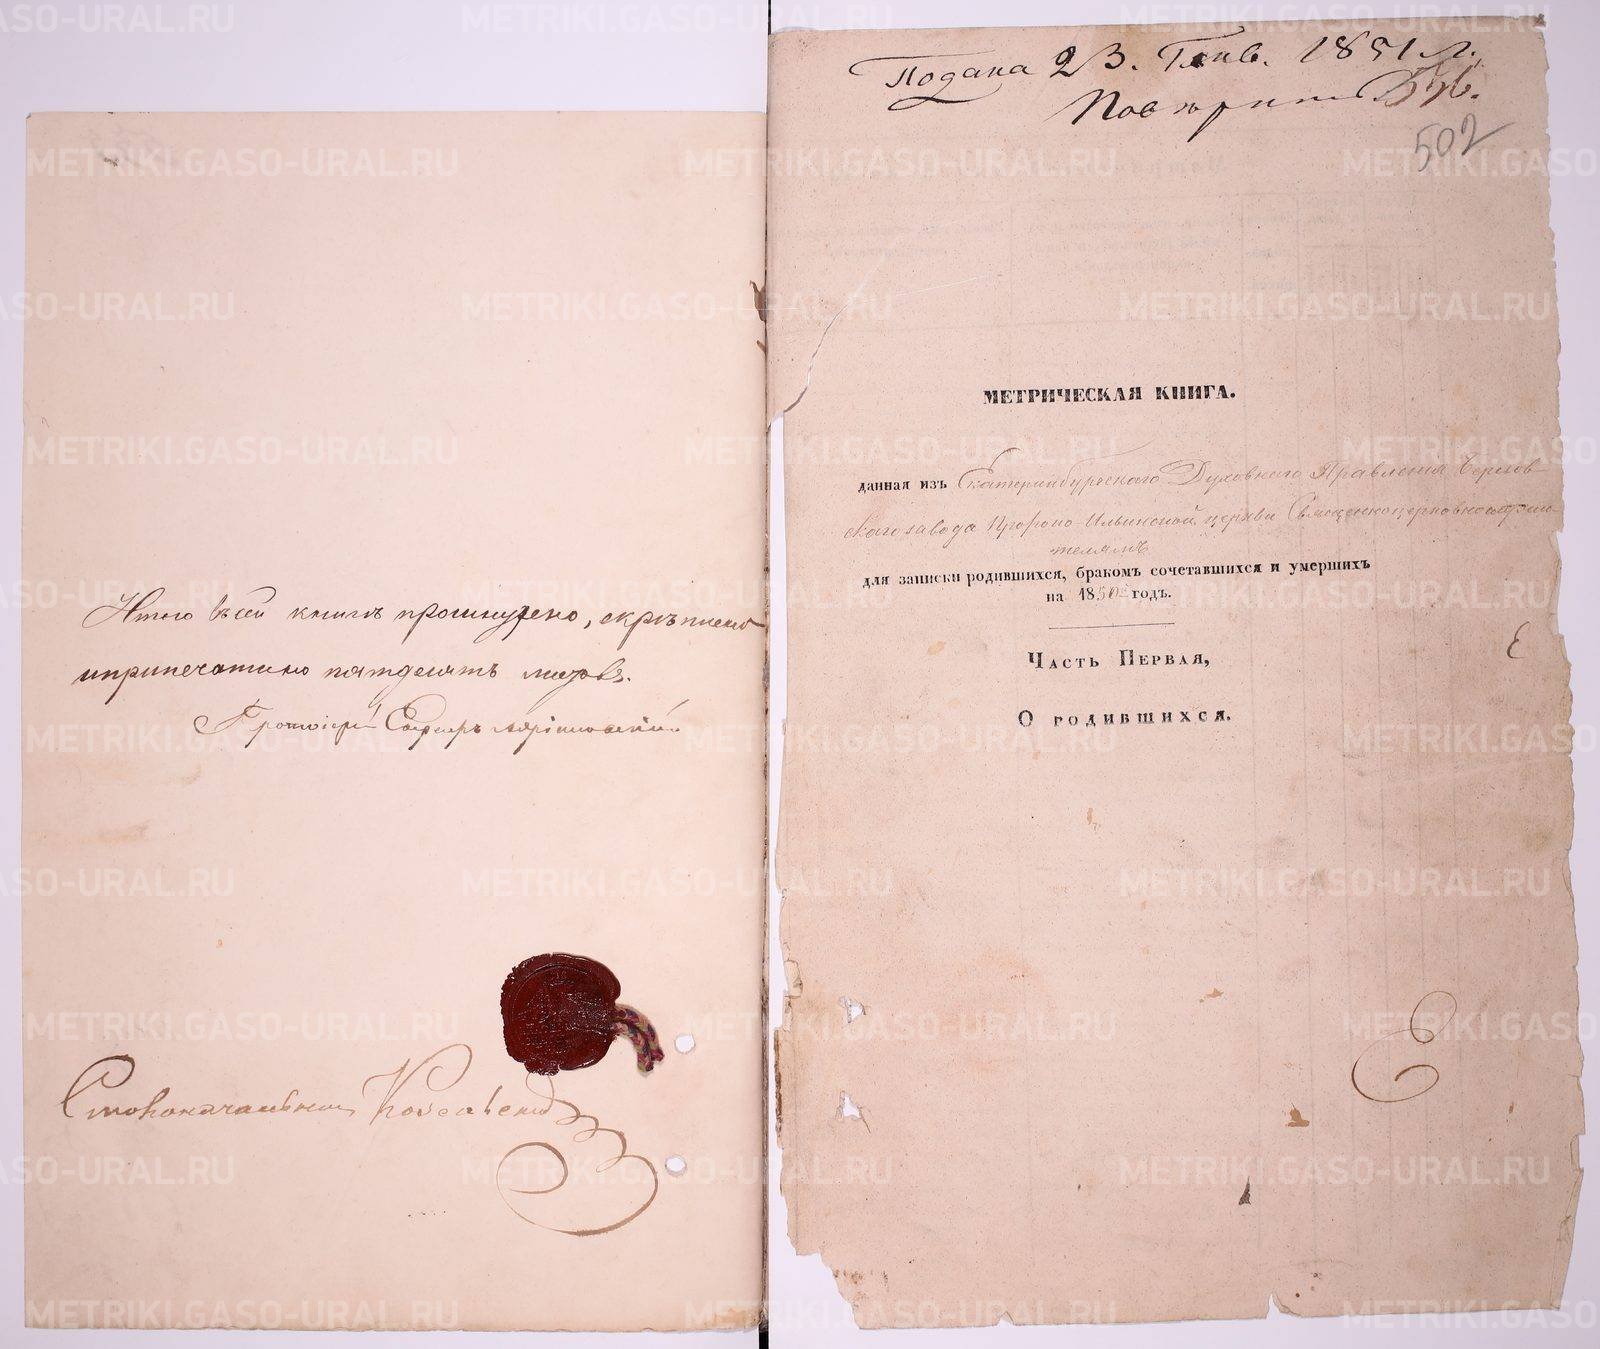 Итого въ сей книгѣ прошнурено, скрѣплено
и припечатано пятдесятъ листовъ.
Протоіерей
Столоначальникъ
Подана 23. Генв. 1851 г.
502
МЕТРИЧЕСКАЯ КНИГА.
данная изъ Екатеринбургскаго Духовнаго Правленія Березов-
скаго завода Пророко-Ильинской церкви Священноцерковнослужи-
телямъ
для записки родившихся, бракомъ сочетавшихся и умершихъ
на 1850й годъ.
Часть Первая,
О родившихся.
METRIKI.GASO-URAL.RU